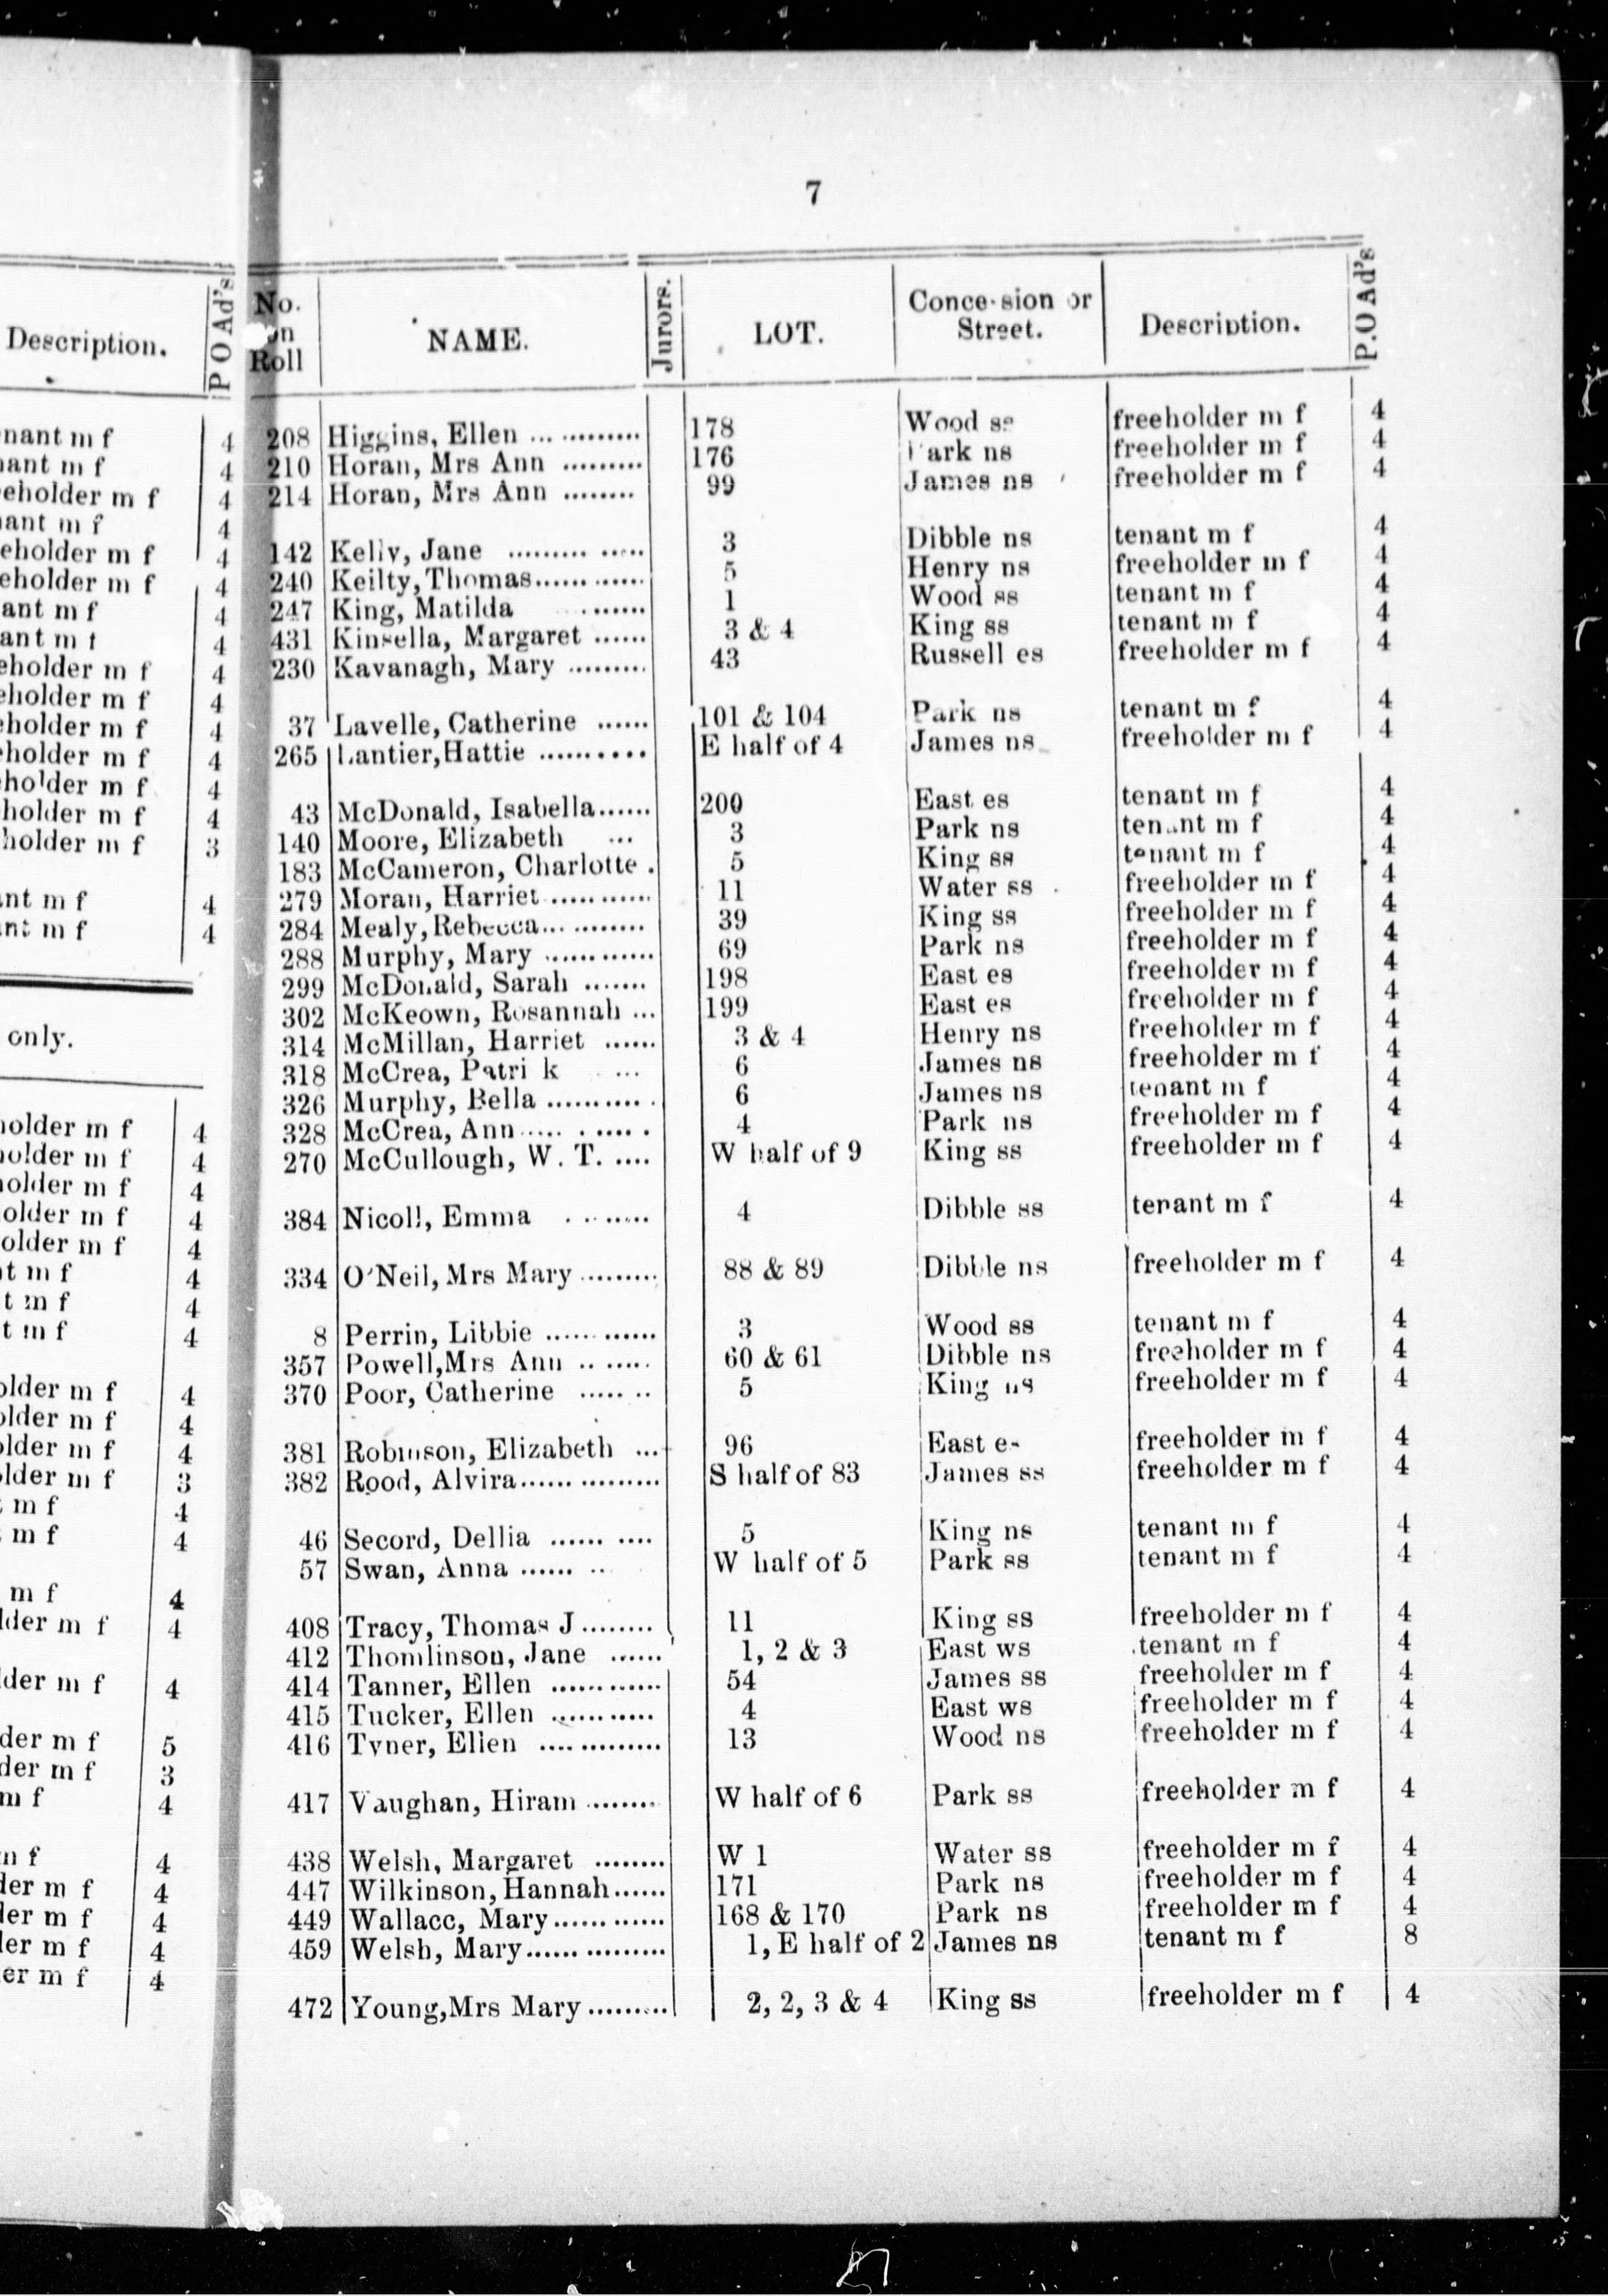 7
Description. P O Ad's
nant m f 4
nant m f 4
eholder m f 4
ant m f 4
eholder m f 4
eholder m f 4
ant m f 4
ant m f 4
eholder m f 4
eholder m f 4
eholder m f 4
holder m f 4
holder m f 4
holder m f 4
holder m f 3
nt m f 4
nt m f 4
only.
holder m f 4
holder m f 4
holder m f 4
older m f 4
older m f 4
t m f 4
t m f 4
t m f 4
older m f 4
older m f 4
older m f 4
lder m f 3
m f 4
m f 4
m f 4
lder m f 4
der m f 4
der m f 5
der m f 3
m f 4
m f 4
der m f 4
er m f 4
er m f 4
er m f 4
No. on Roll NAME. Jurors. LOT. Concession or Street. Description. P.O Ad's
208 Higgins, Ellen ... ......... 178 Wood ss freeholder m f 4
210 Horan, Mrs Ann ......... 176 Park ns freeholder m f 4
214 Horan, Mrs Ann ........ 99 James ns freeholder m f 4
142 Kelly, Jane ......... ...... 3 Dibble ns tenant m f 4
240 Keilty, Thomas............ 5 Henry ns freeholder m f 4
247 King, Matilda ....... 1 Wood ss tenant m f 4
431 Kinsella, Margaret ...... 3 & 4 King ss tenant m f 4
230 Kavanagh, Mary ......... 43 Russell es freeholder m f 4
37 Lavelle, Catherine ...... 101 & 104 Park ns tenant m f 4
265 Lantier, Hattie .......... E half of 4 James ns freeholder m f 4
43 McDonald, Isabella...... 200 East es tenant m f 4
140 Moore, Elizabeth ... 3 Park ns tenant m f 4
183 McCameron, Charlotte . 5 King ss tenant m f 4
279 Moran, Harriet ........... 11 Water ss freeholder m f 4
284 Mealy, Rebecca... ........ 39 King ss freeholder m f 4
288 Murphy, Mary ............ 69 Park ns freeholder m f 4
299 McDonald, Sarah ....... 198 East es freeholder m f 4
302 McKeown, Rosannah ... 199 East es freeholder m f 4
314 McMillan, Harriet ...... 3 & 4 Henry ns freeholder m f 4
318 McCrea, Patri k ... 6 James ns freeholder m f 4
326 Murphy, Bella ........... 6 James ns tenant m f 4
328 McCrea, Ann..... . ..... . 4 Park ns freeholder m f 4
270 McCullough, W. T. .... W half of 9 King ss freeholder m f 4
384 Nicoll, Emma . ....... 4 Dibble ss tenant m f 4
334 O'Neil, Mrs Mary ......... 88 & 89 Dibble ns freeholder m f 4
8 Perrin, Libbie ............ 3 Wood ss tenant m f 4
357 Powell, Mrs Ann .. ...... 60 & 61 Dibble ns freeholder m f 4
370 Poor, Catherine ..... .. 5 King ns freeholder m f 4
381 Robinson, Elizabeth ... 96 East e- freeholder m f 4
382 Rood, Alvira............... S half of 83 James ss freeholder m f 4
46 Secord, Dellia ...... .... 5 King ns tenant m f 4
57 Swan, Anna ...... .. W half of 5 Park ss tenant m f 4
408 Tracy, Thomas J ........ 11 King ss freeholder m f 4
412 Thomlinson, Jane ...... 1, 2 & 3 East ws tenant m f 4
414 Tanner, Ellen ............ 54 James ss freeholder m f 4
415 Tucker, Ellen ........... 4 East ws freeholder m f 4
416 Tyner, Ellen .... ......... 13 Wood ns freeholder m f 4
417 Vaughan, Hiram ........ W half of 6 Park ss freeholder m f 4
438 Welsh, Margaret ........ W 1 Water ss freeholder m f 4
447 Wilkinson, Hannah...... 171 Park ns freeholder m f 4
449 Wallace, Mary............ 168 & 170 Park ns freeholder m f 4
459 Welsh, Mary............... 1, E half of 2 James ns tenant m f 8
472 Young, Mrs Mary ......... 2, 2, 3 & 4 King ss freeholder m f 4